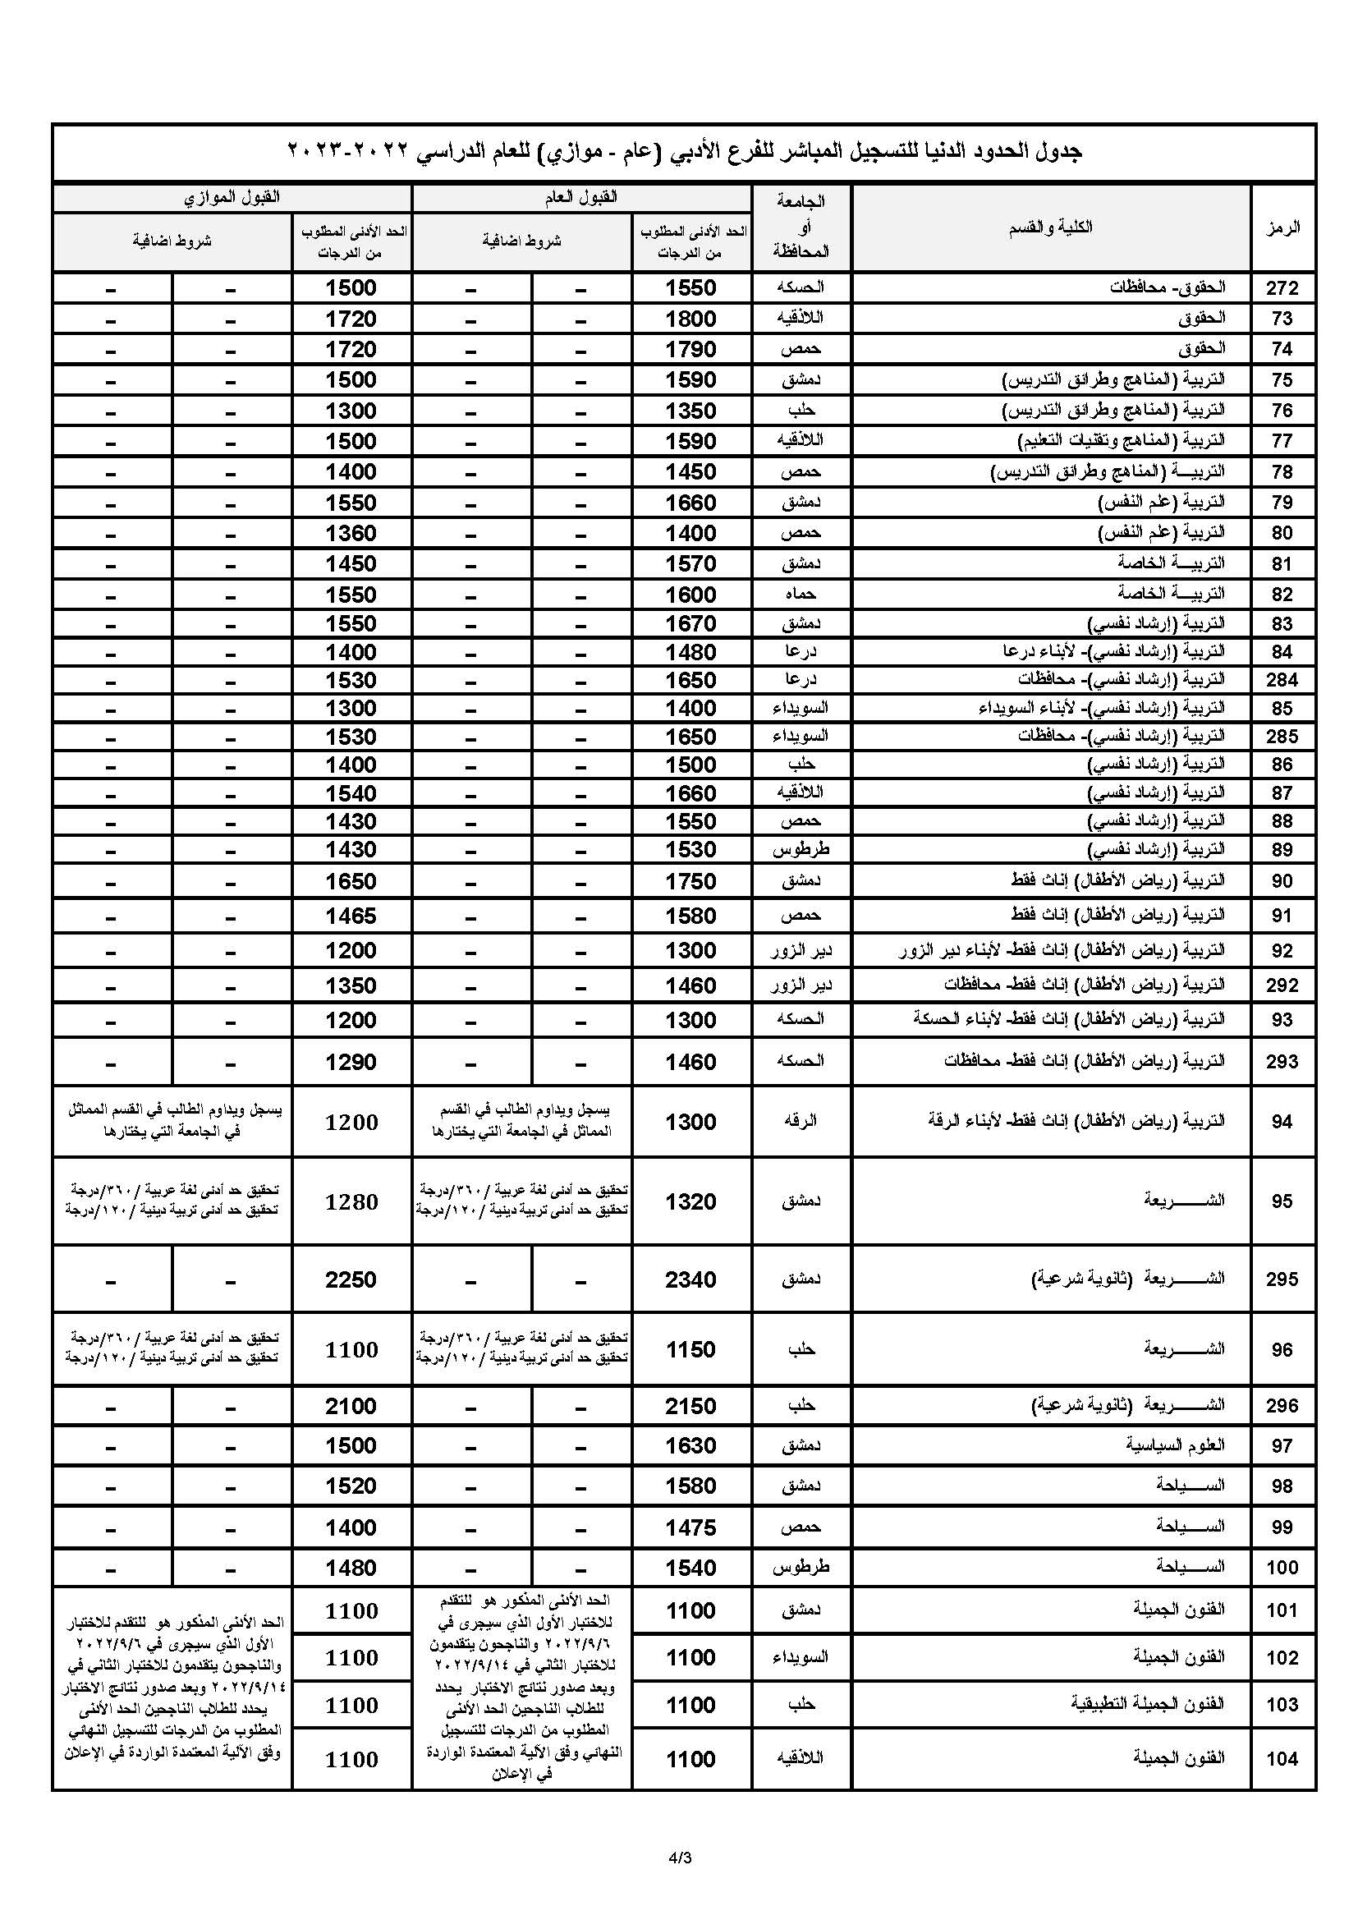 جدول الحدود الدنيا للتسجيل المباشر للفرع الأدبي (عام - موازي) للعام الدراسي ٢٠٢٢-٢٠٢٣
الرمز الكلية والقسم الجامعة أو المحافظة القبول العام القبول الموازي
الحد الأدنى المطلوب من الدرجات شروط اضافية الحد الأدنى المطلوب من الدرجات شروط اضافية
272 الحقوق- محافظات الحسكه 1550 - - 1500 - -
73 الحقوق اللاذقيه 1800 - - 1720 - -
74 الحقوق حمص 1790 - - 1720 - -
75 التربية (المناهج وطرائق التدريس) دمشق 1590 - - 1500 - -
76 التربية (المناهج وطرائق التدريس) حلب 1350 - - 1300 - -
77 التربية (المناهج وتقنيات التعليم) اللاذقيه 1590 - - 1500 - -
78 التربيـــة (المناهج وطرائق التدريس) حمص 1450 - - 1400 - -
79 التربية (علم النفس) دمشق 1660 - - 1550 - -
80 التربية (علم النفس) حمص 1400 - - 1360 - -
81 التربيـــة الخاصة دمشق 1570 - - 1450 - -
82 التربيـــة الخاصة حماه 1600 - - 1550 - -
83 التربية (إرشاد نفسي) دمشق 1670 - - 1550 - -
84 التربية (إرشاد نفسي)- لأبناء درعا درعا 1480 - - 1400 - -
284 التربية (إرشاد نفسي)- محافظات درعا 1650 - - 1530 - -
85 التربية (إرشاد نفسي)- لأبناء السويداء السويداء 1400 - - 1300 - -
285 التربية (إرشاد نفسي)- محافظات السويداء 1650 - - 1530 - -
86 التربية (إرشاد نفسي) حلب 1500 - - 1400 - -
87 التربية (إرشاد نفسي) اللاذقيه 1660 - - 1540 - -
88 التربية (إرشاد نفسي) حمص 1550 - - 1430 - -
89 التربية (إرشاد نفسي) طرطوس 1530 - - 1430 - -
90 التربية (رياض الأطفال) إناث فقط دمشق 1750 - - 1650 - -
91 التربية (رياض الأطفال) إناث فقط حمص 1580 - - 1465 - -
92 التربية (رياض الأطفال) إناث فقط- لأبناء دير الزور دير الزور 1300 - - 1200 - -
292 التربية (رياض الأطفال) إناث فقط- محافظات دير الزور 1460 - - 1350 - -
93 التربية (رياض الأطفال) إناث فقط- لأبناء الحسكة الحسكه 1300 - - 1200 - -
293 التربية (رياض الأطفال) إناث فقط- محافظات الحسكه 1460 - - 1290 - -
94 التربية (رياض الأطفال) إناث فقط- لأبناء الرقة الرقه 1300 يسجل ويداوم الطالب في القسم المماثل في الجامعة التي يختارها 1200 يسجل ويداوم الطالب في القسم المماثل في الجامعة التي يختارها
95 الشـــــريعة دمشق 1320 تحقيق حد أدنى لغة عربية /٣٦٠/درجة تحقيق حد أدنى تربية دينية /١٢٠/درجة 1280 تحقيق حد أدنى لغة عربية /٣٦٠/درجة تحقيق حد أدنى تربية دينية /١٢٠/درجة
295 الشـــــريعة (ثانوية شرعية) دمشق 2340 - - 2250 - -
96 الشـــــريعة حلب 1150 تحقيق حد أدنى لغة عربية /٣٦٠/درجة تحقيق حد أدنى تربية دينية /١٢٠/درجة 1100 تحقيق حد أدنى لغة عربية /٣٦٠/درجة تحقيق حد أدنى تربية دينية /١٢٠/درجة
296 الشـــــريعة (ثانوية شرعية) حلب 2150 - - 2100 - -
97 العلوم السياسية دمشق 1630 - - 1500 - -
98 الســـياحة دمشق 1580 - - 1520 - -
99 الســـياحة حمص 1475 - - 1400 - -
100 الســـياحة طرطوس 1540 - - 1480 - -
101 الفنون الجميلة دمشق 1100 1100
102 الفنون الجميلة السويداء 1100 1100
103 الفنون الجميلة التطبيقية حلب 1100 1100
104 الفنون الجميلة اللاذقيه 1100 1100
الحد الأدنى المذكور هو للتقدم
للاختبار الأول الذي سيجرى في
٢٠٢٢/٩/٦ والناجحون يتقدمون
للاختبار الثاني في ٢٠٢٢/٩/١٤
وبعد صدور نتائج الاختبار يحدد
للطلاب الناجحين الحد الأدنى
المطلوب من الدرجات للتسجيل
النهائي وفق الآلية المعتمدة الواردة
في الإعلان
الحد الأدنى المذكور هو للتقدم للاختبار
الأول الذي سيجرى في ٢٠٢٢/٩/٦
والناجحون يتقدمون للاختبار الثاني في
٢٠٢٢/٩/١٤ وبعد صدور نتائج الاختبار
يحدد للطلاب الناجحين الحد الأدنى
المطلوب من الدرجات للتسجيل النهائي
وفق الآلية المعتمدة الواردة في الإعلان
4/3